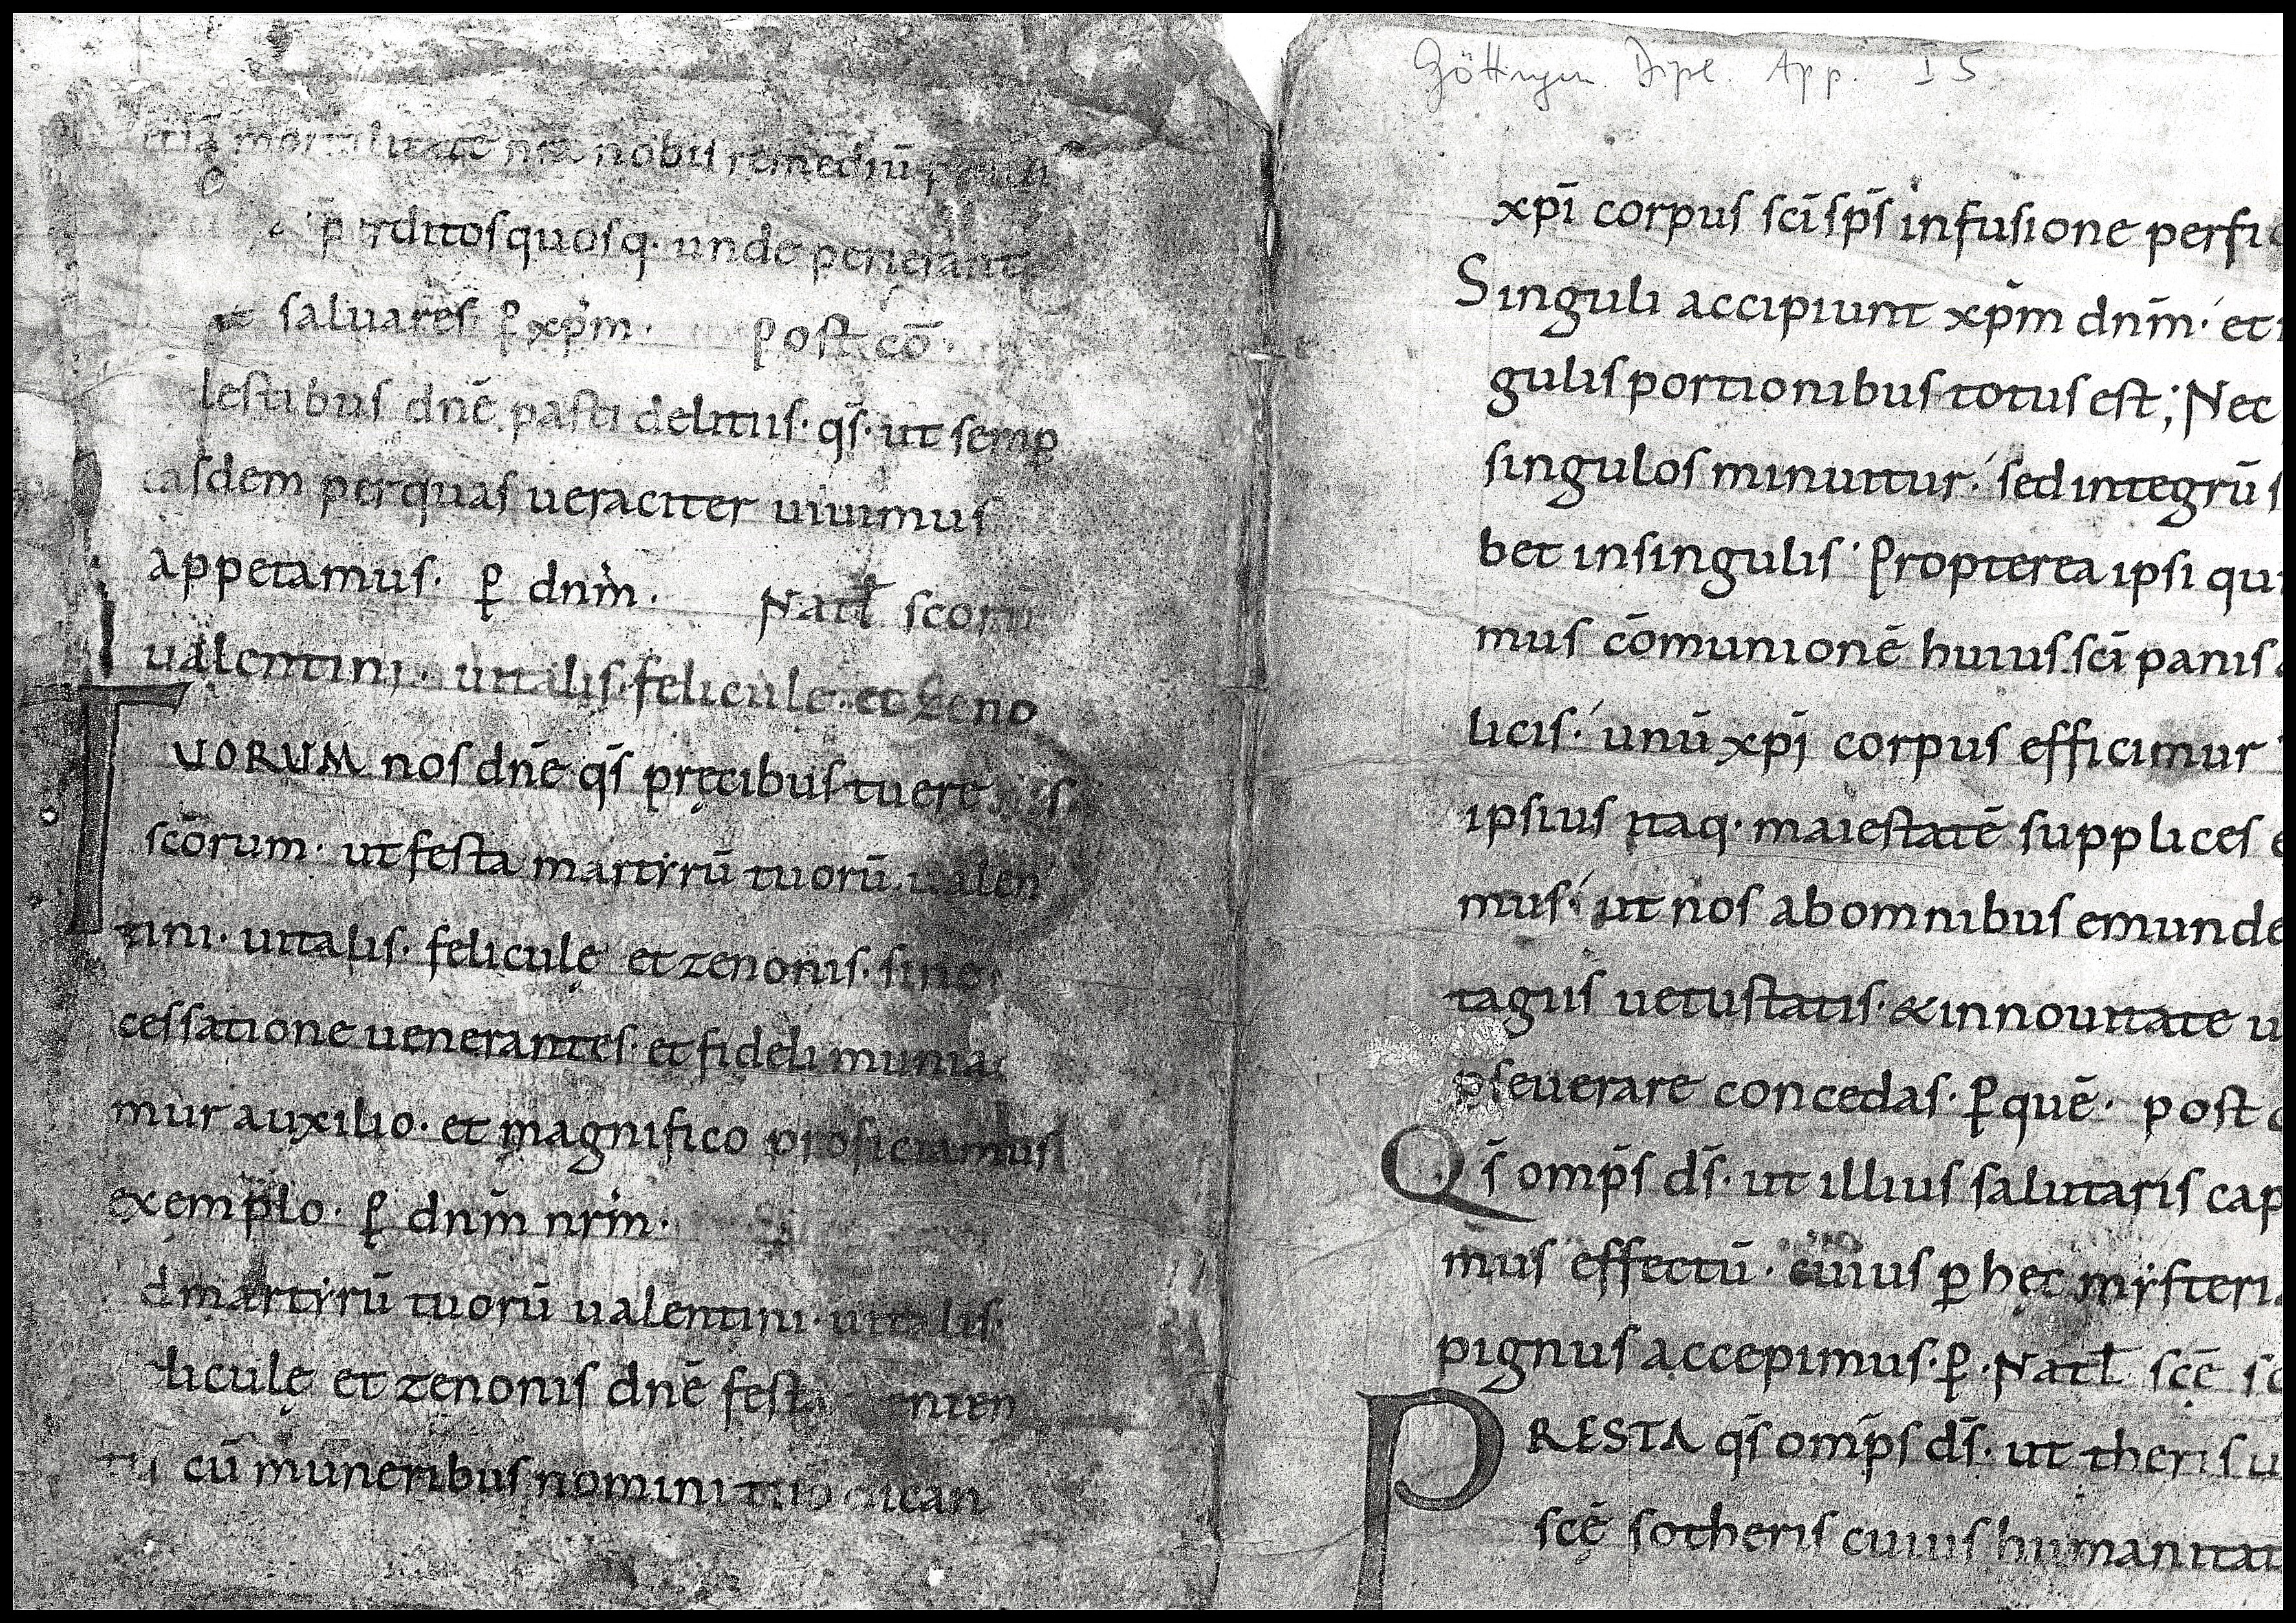 mortalitate nr̄a nobis remediū
p̄ditos quosq· unde perierant
saluares ꝑ xp̄m· post cō·
lestibus dn̄e pasti delitiis· qs̄· ut semꝑ
easdem per quas ueraciter uiuimus
appetamus· ꝑ dnm̄· Natł scōrū
ualentini· uitalis· felicule· et Zeno
TUORUM nos dn̄e qs̄ pręcibus tuere
scōrum· ut festa martyrū tuorū ualen
tini· uitalis· feliculę et zenonis· sine
cessatione uenerantes· et fideli munia
mur auxilio· et magnifico proficiamus
exemplo· ꝑ dnm̄ nrm̄·
d martyrū tuorū ualentini· uitalis·
liculę et zenonis dn̄e festa
cū muneribus nomini tuo dican
Göttingen Dipl. App. I 5
xpī corpus scī sp̄s infusione perfic
Singuli accipiunt xp̄m dnm̄· et
gulis portionibus totus est; Nec
singulos minuitur· sed integrū s
bet in singulis· Propterea ipsi qui
mus cōmunionē huius scī panis
licis· unū xpī corpus efficimur
ipsius itaq· maiestatē supplices e
mus· ut nos ab omnibus emunde
tagiis uetustatis· & in nouitate u
ꝑseuerare concedas· ꝑ quē· post c
Qs̄ omp̄s ds̄· ut illius salutaris cap
mus effectū· cuius ꝑ hęc mysteria
pignus accepimus· ꝑ· Natł scę̄ so
PRESTA qs̄ omp̄s ds̄· ut theris u
scę̄ sotheris cuius humanitat